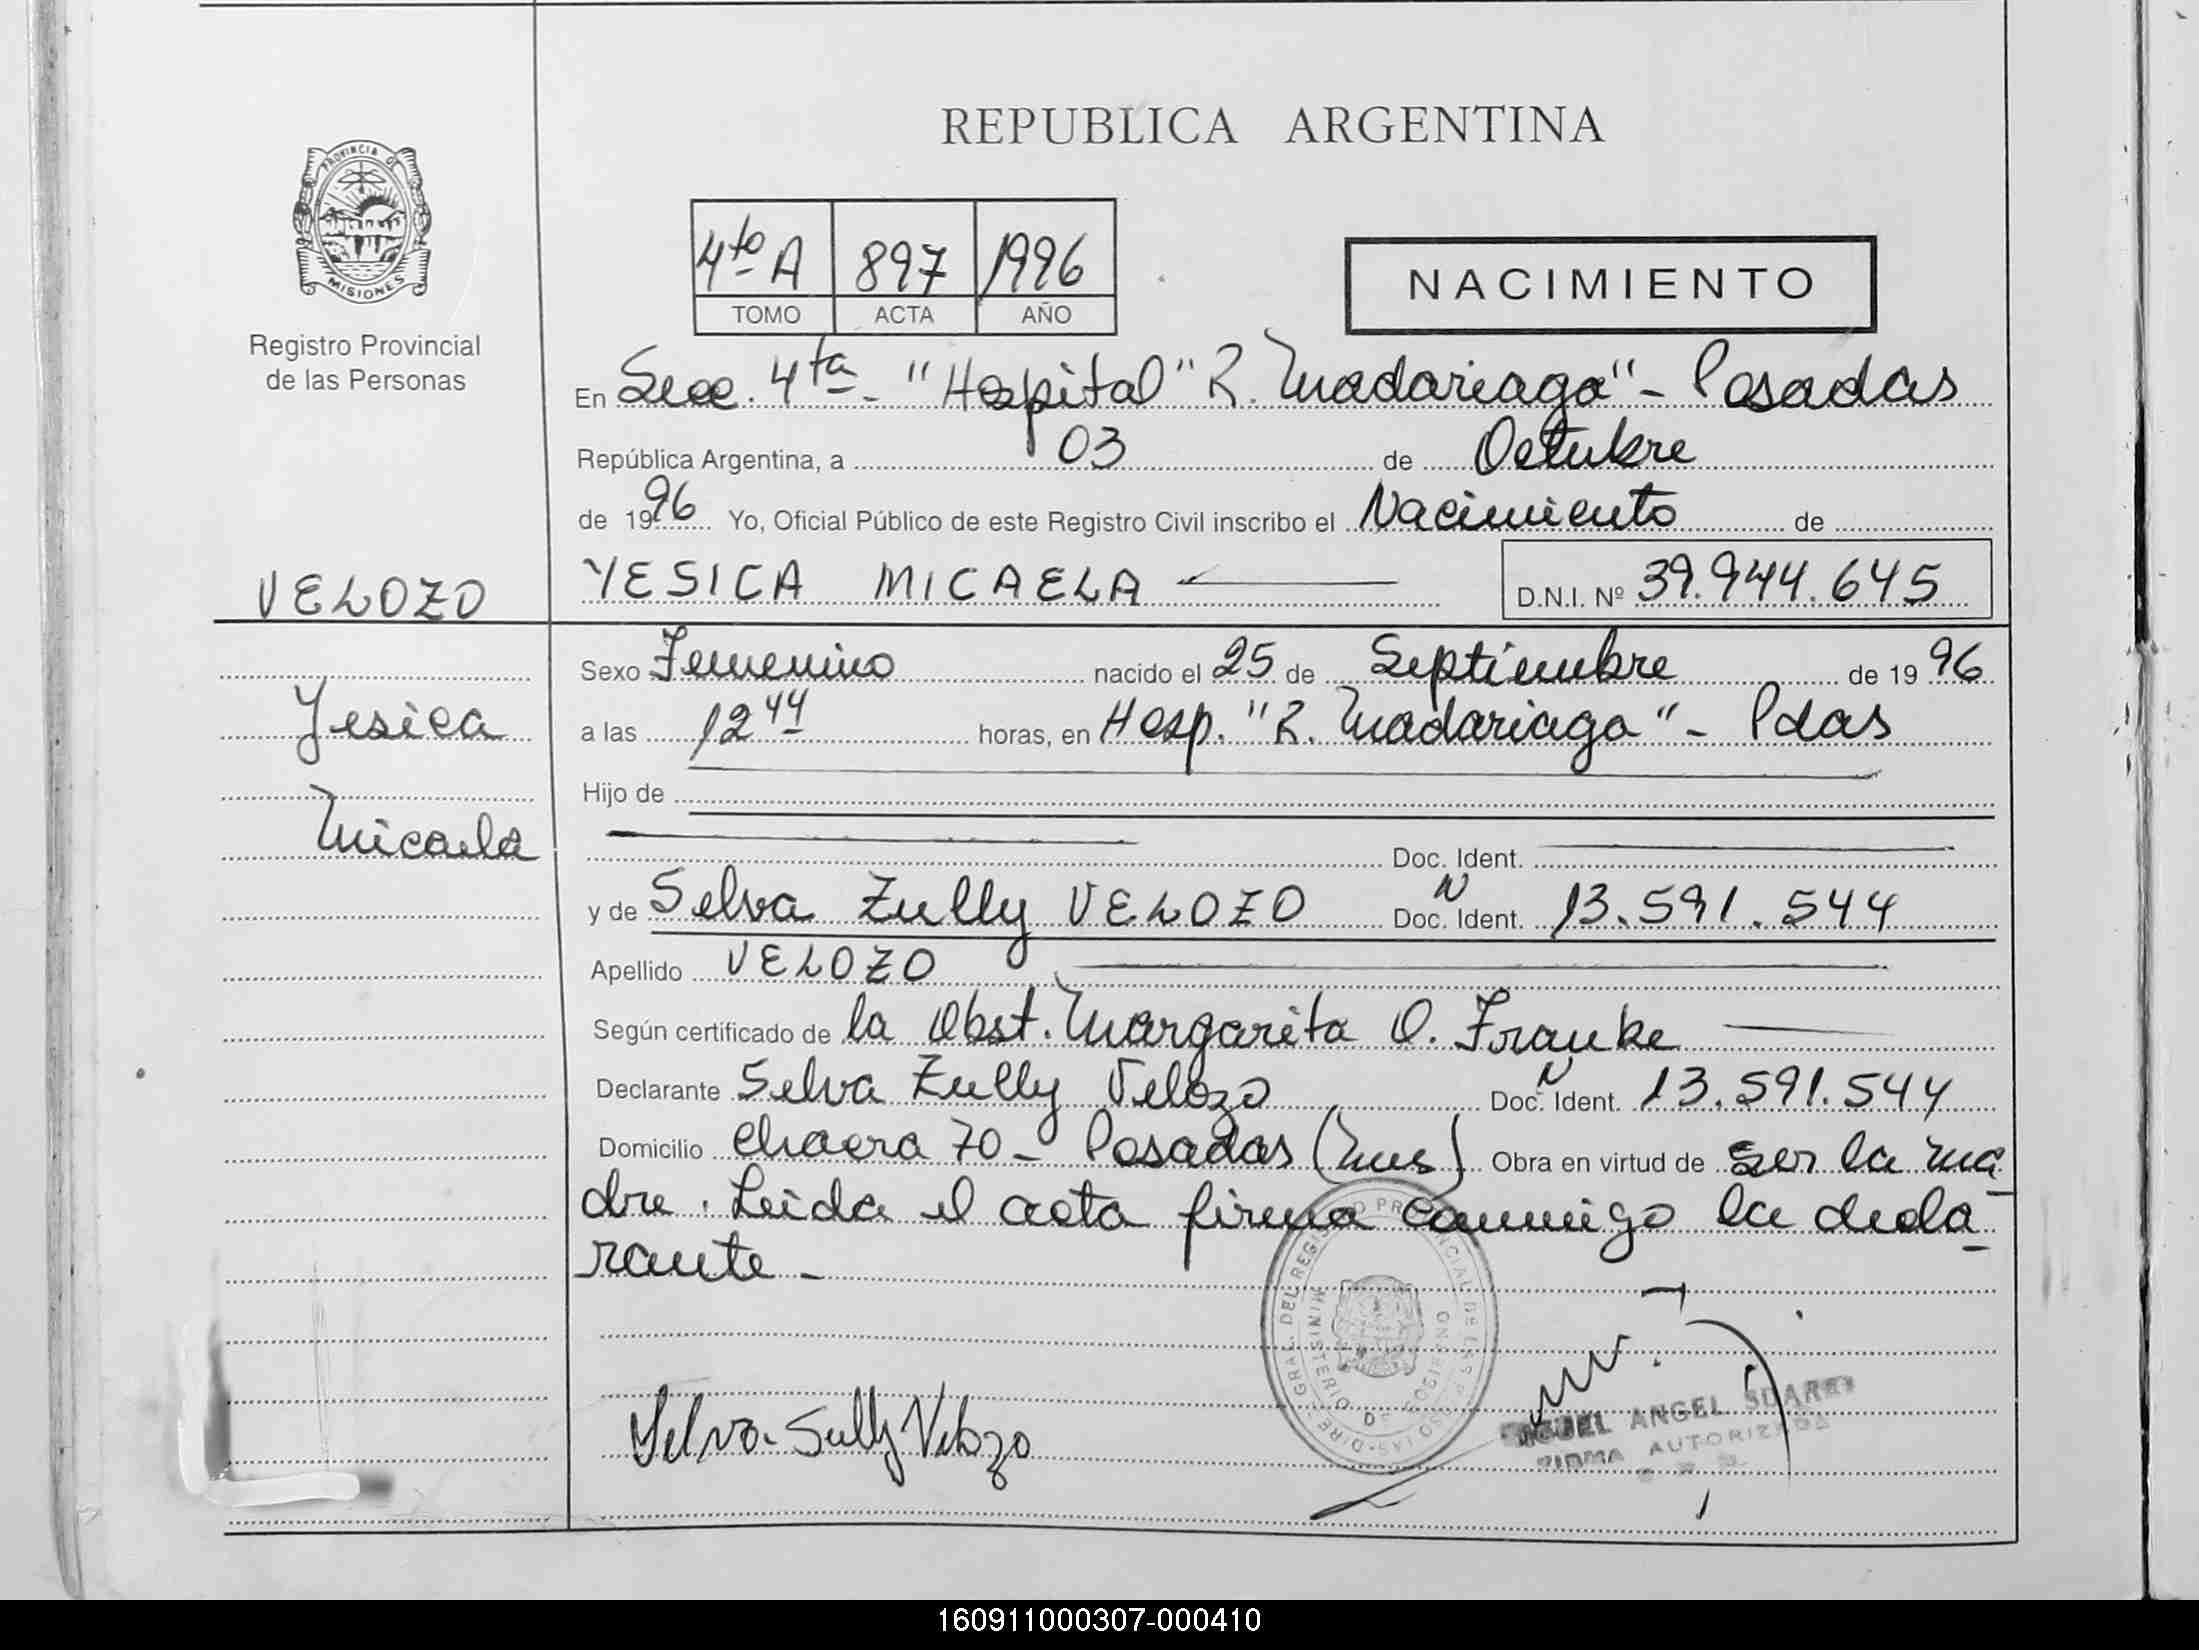 REPUBLICA ARGENTINA
PROVINCIA DE
MISIONES
Registro Provincial
de las Personas
4to A 897 1996
TOMO ACTA AÑO
NACIMIENTO
En Secc. 4ta - "Hospital" R. Madariaga" - Posadas
República Argentina, a 03 de Octubre
de 1996 Yo, Oficial Público de este Registro Civil inscribo el Nacimiento de
VELOZO
YESICA MICAELA
D.N.I. Nº 39.944.645
Yesica
Micaela
Sexo Femenino nacido el 25 de Septiembre de 1996
a las 12 44 horas, en Hosp. "R. Madariaga" - Pdas
Hijo de
Doc. Ident.
y de Selva Zully VELOZO Doc. N Ident. 13.591.544
Apellido VELOZO
Según certificado de la Obst. Margarita O. Franke
Declarante Selva Zully Velozo Doc. N Ident. 13.591.544
Domicilio Chacra 70 - Posadas (Mnes) Obra en virtud de ser la ma-
dre. Leida el acta firma conmigo la decla-
rante -
DIRECC. GRAL. DEL REGISTRO PROVINCIAL DE LAS PERSONAS
MINISTERIO DE GOBIERNO
Selva Sully Velozo
MIGUEL ANGEL SUAREZ
FIRMA AUTORIZADA
160911000307-000410